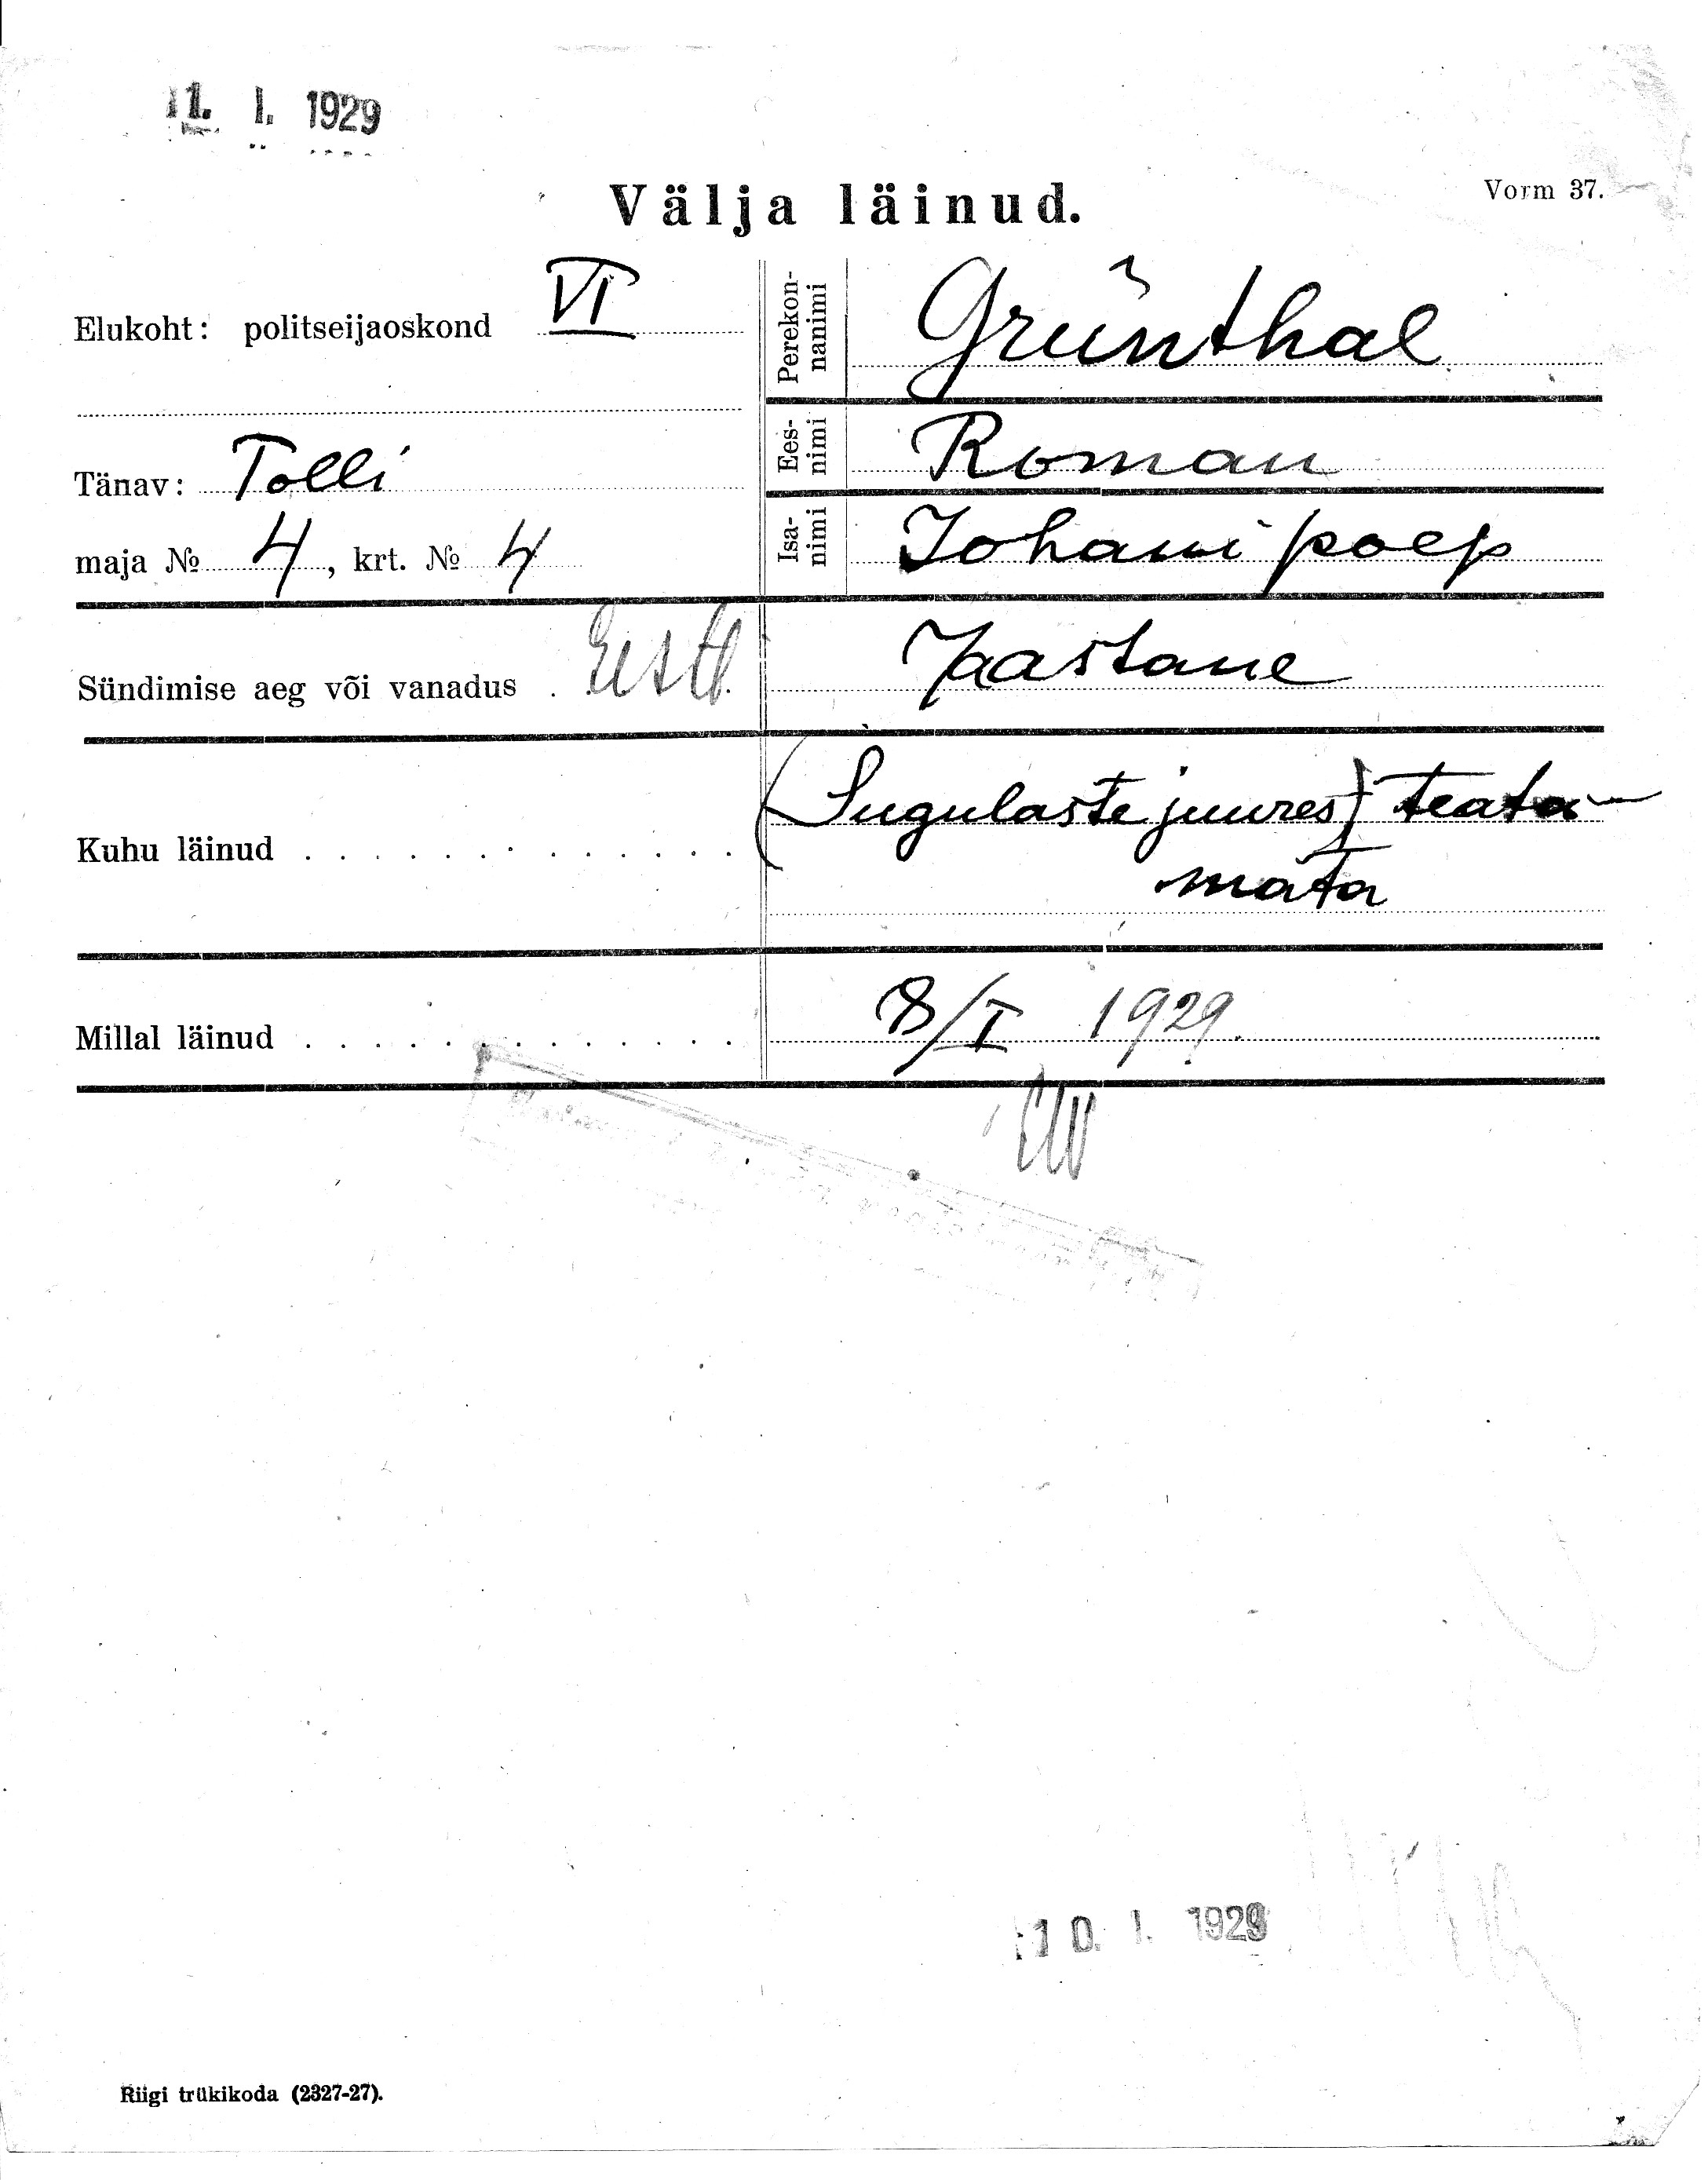 11. I. 1929
Välja läinud.
Vorm 37.
Elukoht: politseijaoskond VI
Perekon-
nanimi
Grünthal
Ees-
nimi
Roman
Tänav: Tolli
Isa-
nimi
Johani poeg
maja № 4, krt. № 4
Sündimise aeg või vanadus . Eesti
aastane
Kuhu läinud . . . . . . . . . . . . .
(Sugulaste juures) teata-
mata
Millal läinud . . . . . . . . . . . . .
8/I 1929.
10. I. 1929
Riigi trükikoda (2327-27).